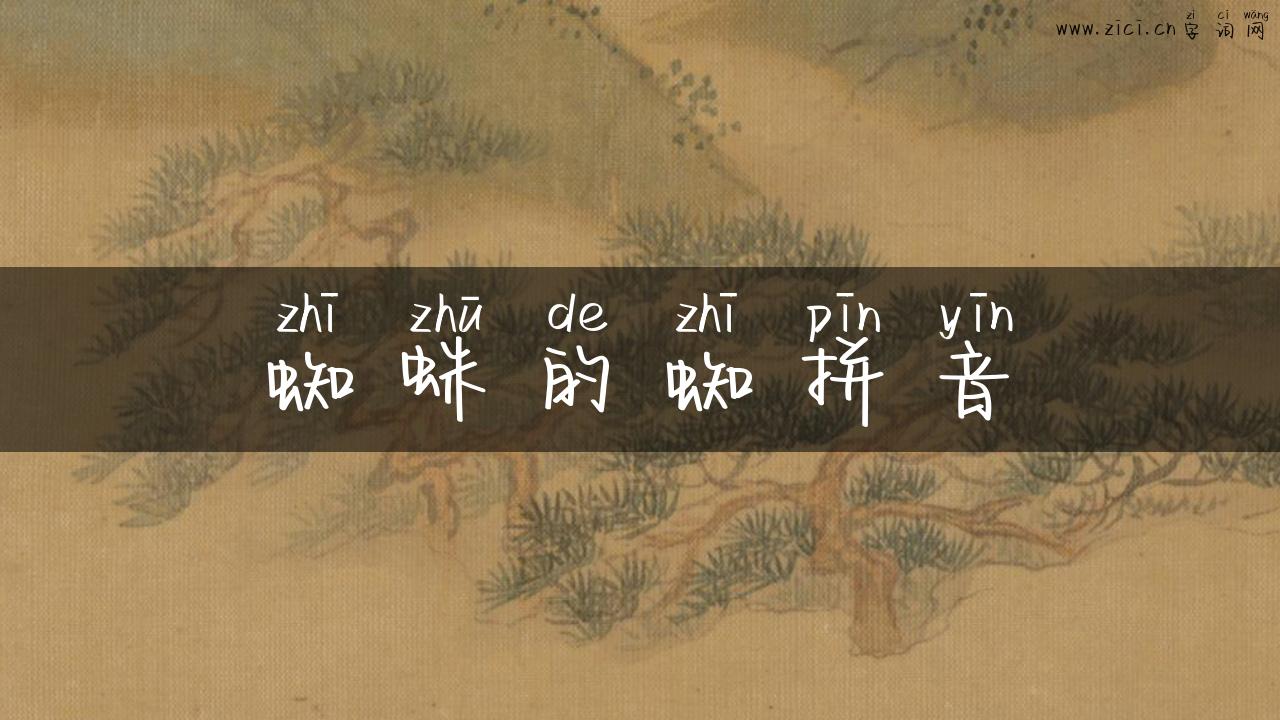 zì cí wǎng
www.zici.cn 字 词 网
zhī zhū de zhī pīn yīn
蜘 蛛 的 蜘 拼 音